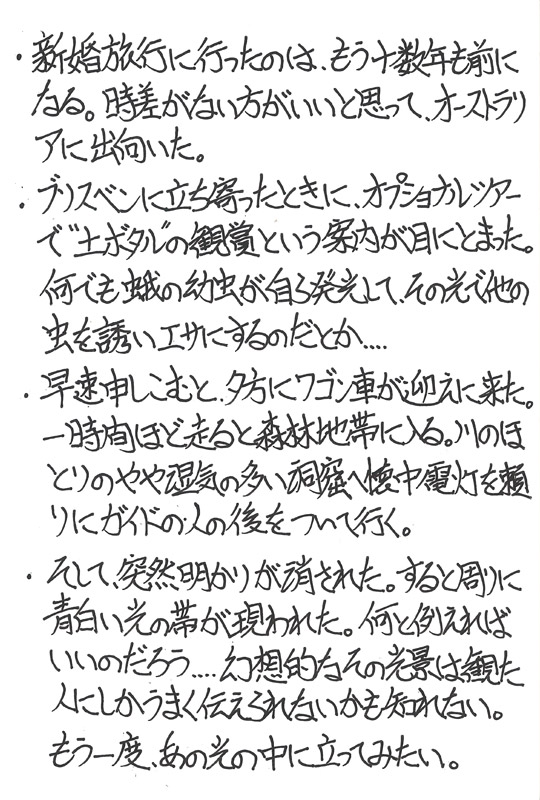 ・新婚旅行に行ったのは、もう十数年も前に
なる。時差がない方がいいと思って、オーストラリ
アに出向いた。
・ブリスベンに立ち寄ったときに、オプショナルツアー
で“土ボタル”の観賞という案内が目にとまった。
何でも蛾の幼虫が自ら発光して、その光で他の
虫を誘いエサにするのだとか....
・早速申しこむと、夕方にワゴン車が迎えに来た。
一時間ほど走ると森林地帯に入る。川のほ
とりのやや湿気の多い洞窟へ懐中電灯を頼
りにガイドの人の後をついて行く。
・そして、突然明かりが消された。すると周りに
青白い光の帯が現われた。何と例えれば
いいのだろう....幻想的なその光景は観た
人にしかうまく伝えられないかも知れない。
もう一度、あの光の中に立ってみたい。